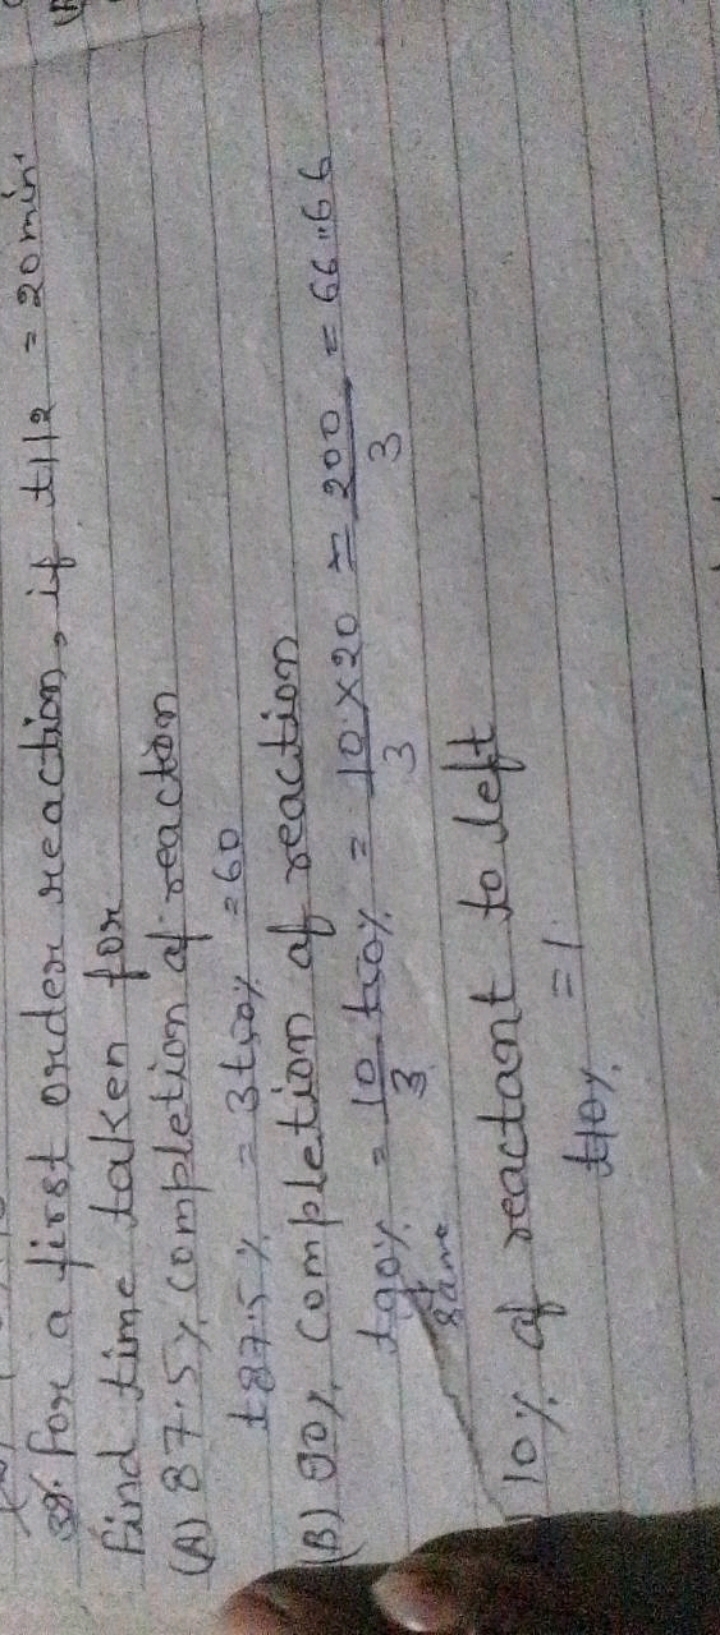 39. for a first order reaction, if t1/2 = 20 min.
find time taken for
(A) 87.5% completion of reaction
t87.5% = 3t50% = 60
(B) 90% completion of reaction
t90% = 10/3 t50% = 10/3 × 20 = 200/3 = 66.66
same
10% of reactant to left
t10% = 1